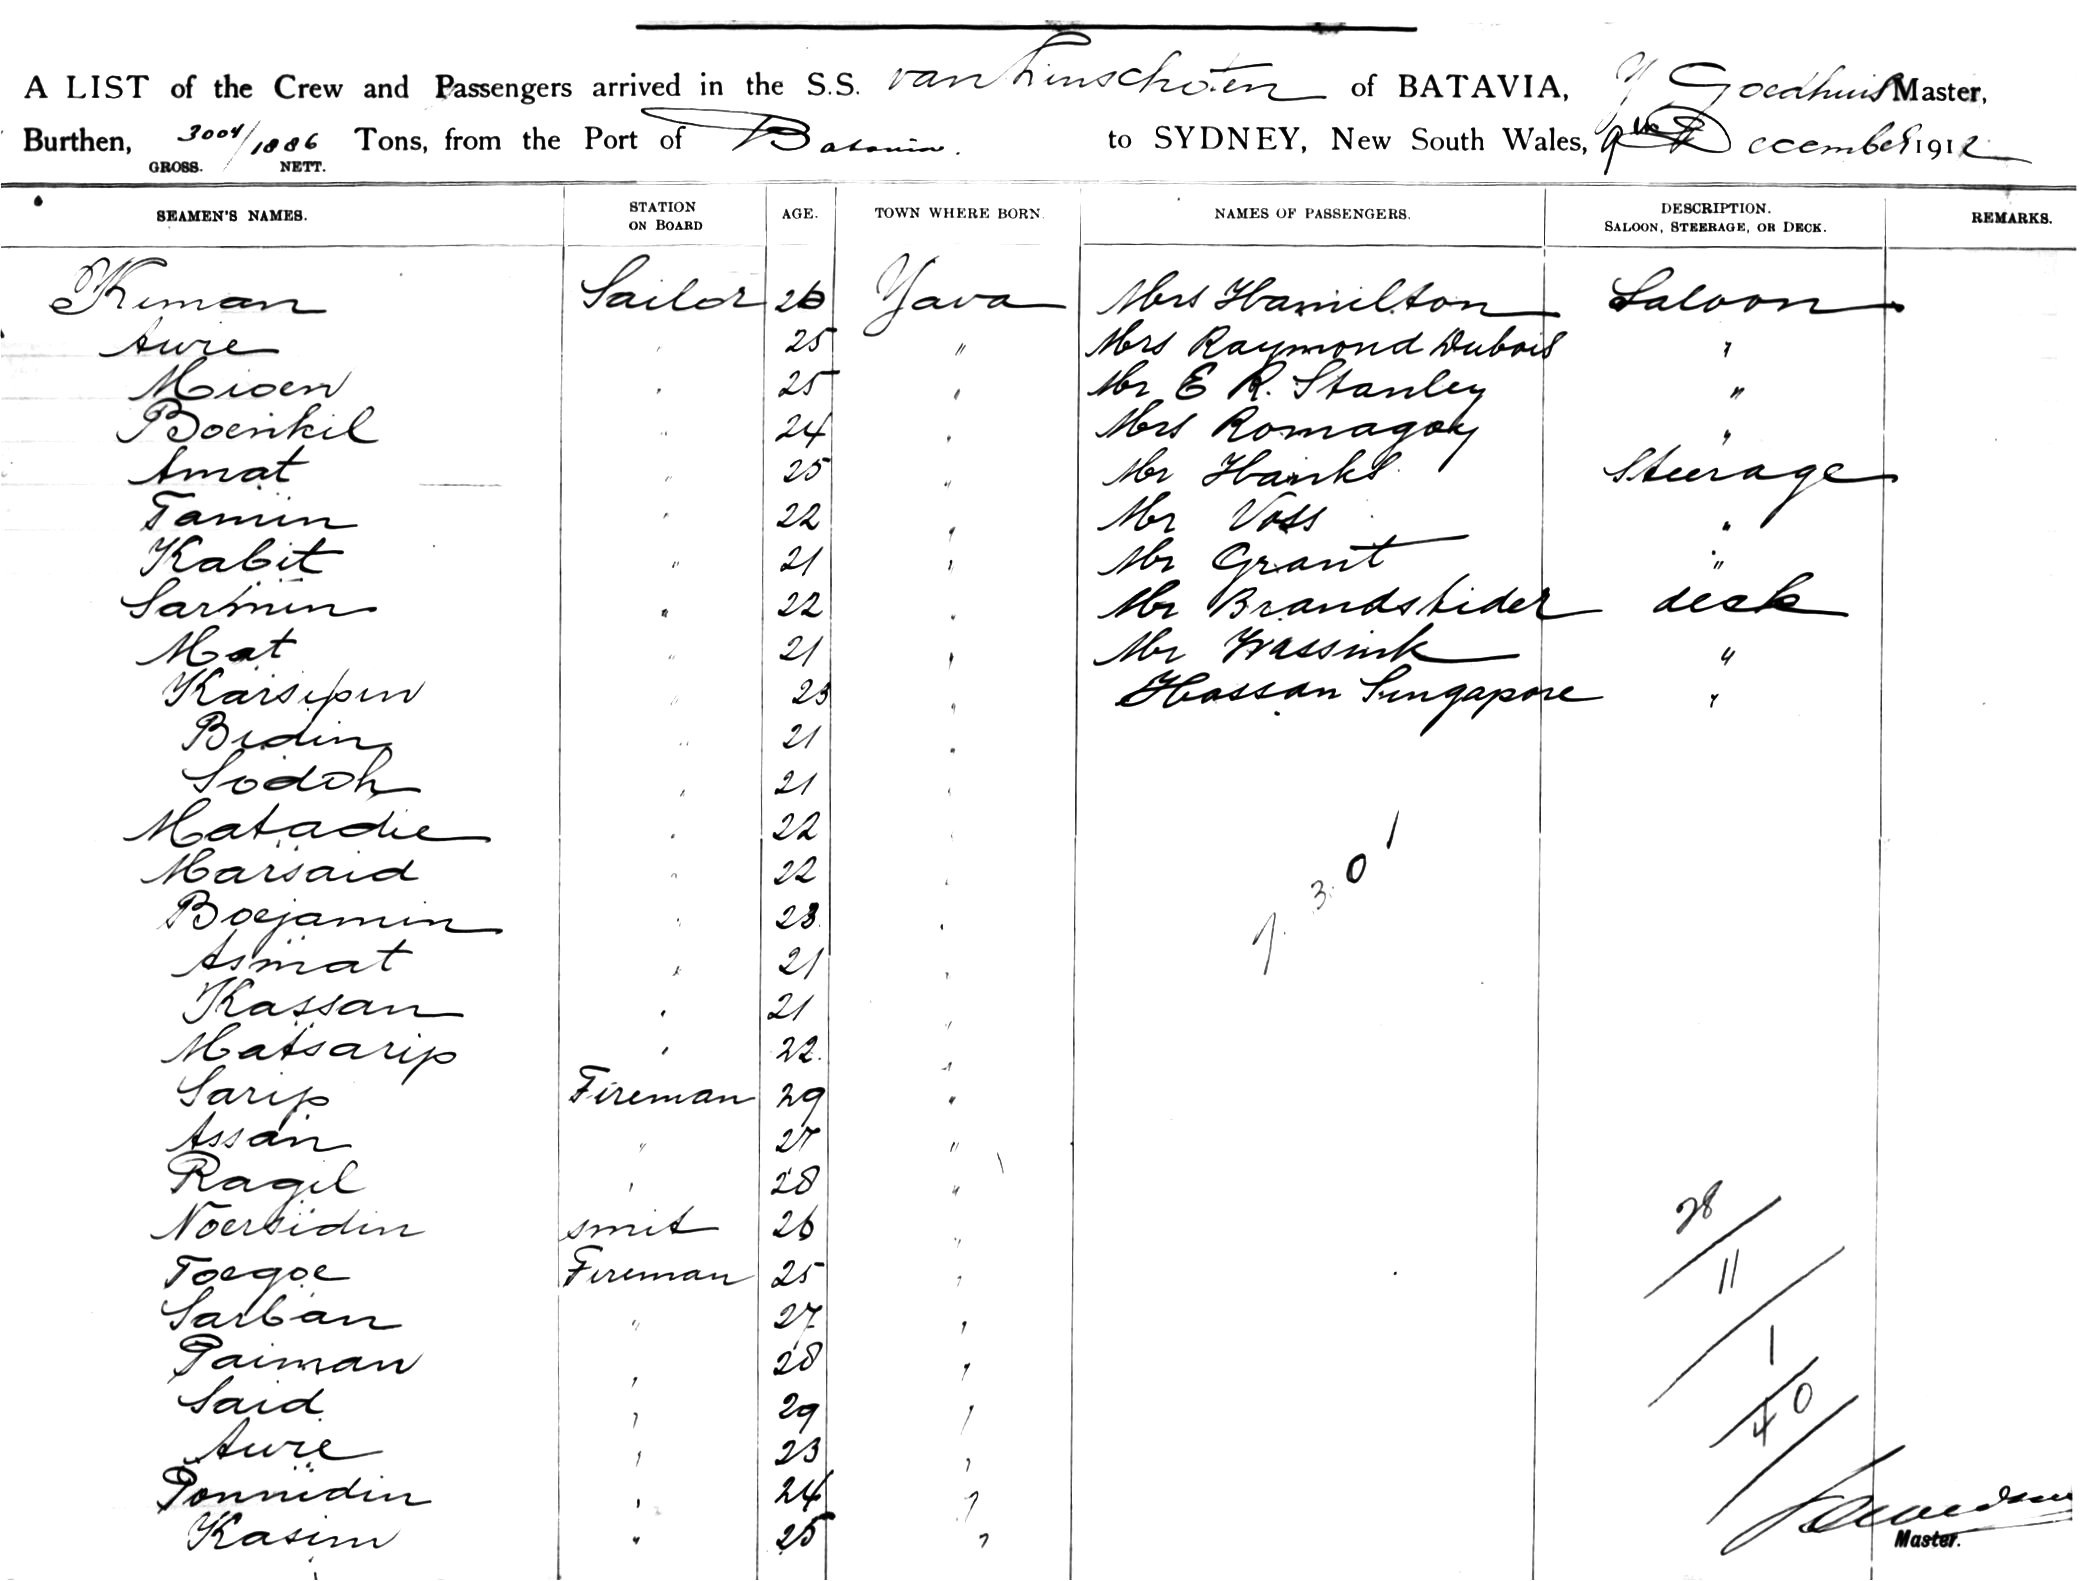 A LIST of the Crew and Passengers arrived in the S.S. van Linschoten of BATAVIA, Goedhuis Master,
Burthen, 3004/1886 Tons, from the Port of Batavia. to SYDNEY, New South Wales, 9th December 1912
GROSS. NETT.
SEAMEN'S NAMES. STATION ON BOARD AGE. TOWN WHERE BORN. NAMES OF PASSENGERS. DESCRIPTION. SALOON, STEERAGE, OR DECK. REMARKS.
Kiman Sailor 26 Yava Mrs Hamilton Saloon
Awie " 25 " Mrs Raymond Dubois "
Mioen " 25 " Mr E R. Stanley "
Boenkil " 24 " Mrs Romagoy "
Amat " 25 " Mr Hanks Steerage
Tamin " 22 " Mr Voss "
Kabit " 21 " Mr Grant "
Sarmin " 22 " Mr Brandstider deck
Mat " 21 " Mr Wassink "
Karsipin " 23 " Hassan Singapore "
Bidin " 21 "
Sodoh " 21 "
Matadie " 22 "
Marsaid " 22 "
Boejamin " 23 "
Asmat " 21 "
Kassan " 21 "
Matsarip " 22 "
Sarip Fireman 29 "
Assan " 27 "
Ragil " 28 "
Noersidin smit 26 "
Toegoe Fireman 25 "
Sarban " 27 "
Paiman " 28 "
Said " 29 "
Awie " 23 "
Ponnidin " 24 "
Kasim " 25 "
7.30
28/11/1/40
Master.